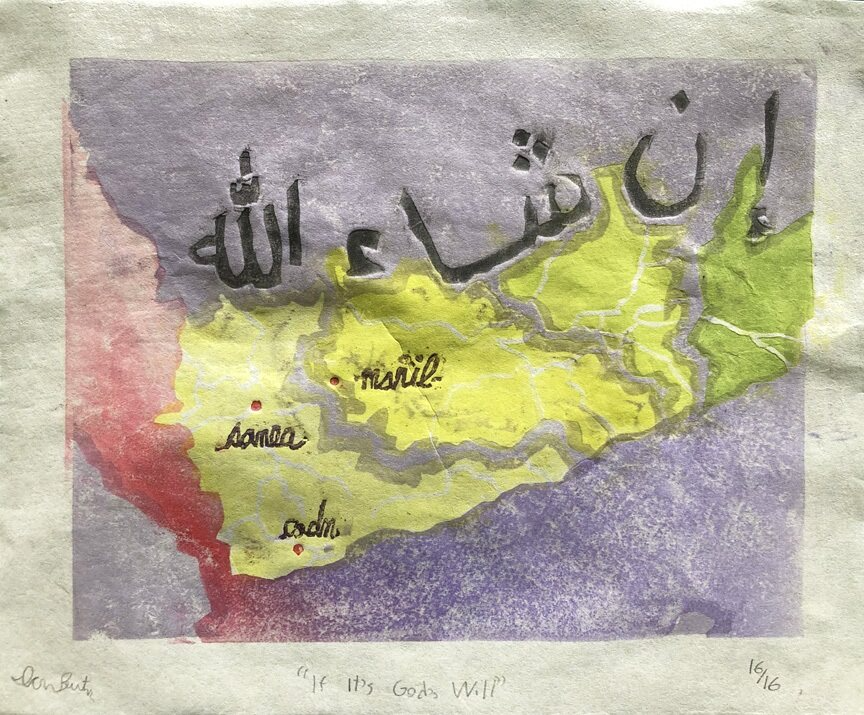 إن شاء الله
marib
sanaa
aden
"If It's God's Will"
16/16